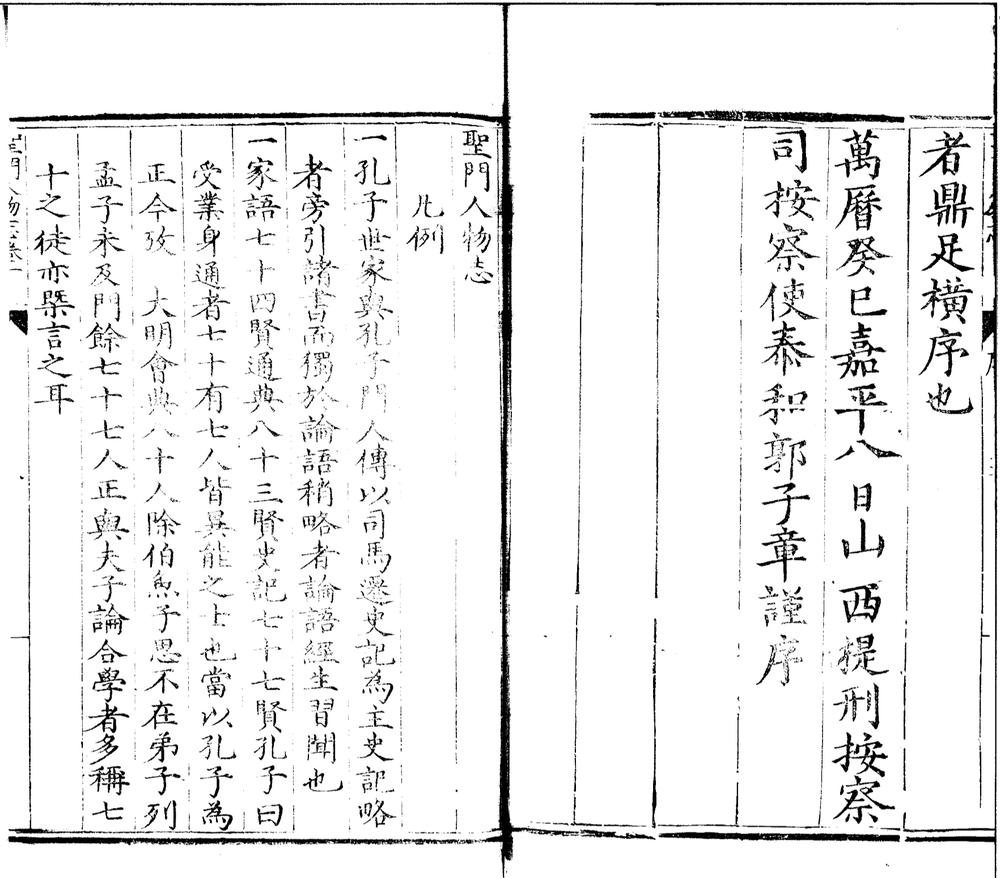 者鼎足橫序也
萬曆癸巳嘉平八日山西提刑按察
司按察使泰和郭子章謹序
聖門人物志
凡例
一孔子世家與孔子門人傳以司馬遷史記為主史記略
者旁引諸書而獨於論語稍略者論語經生習聞也
一家語七十四賢通典八十三賢史記七十七賢孔子曰
受業身通者七十有七人皆異能之士也當以孔子為
正今攷 大明會典八十人除伯魚子思不在弟子列
孟子未及門餘七十七人正與夫子論合學者多稱七
十之徒亦槩言之耳
聖門人物志卷一